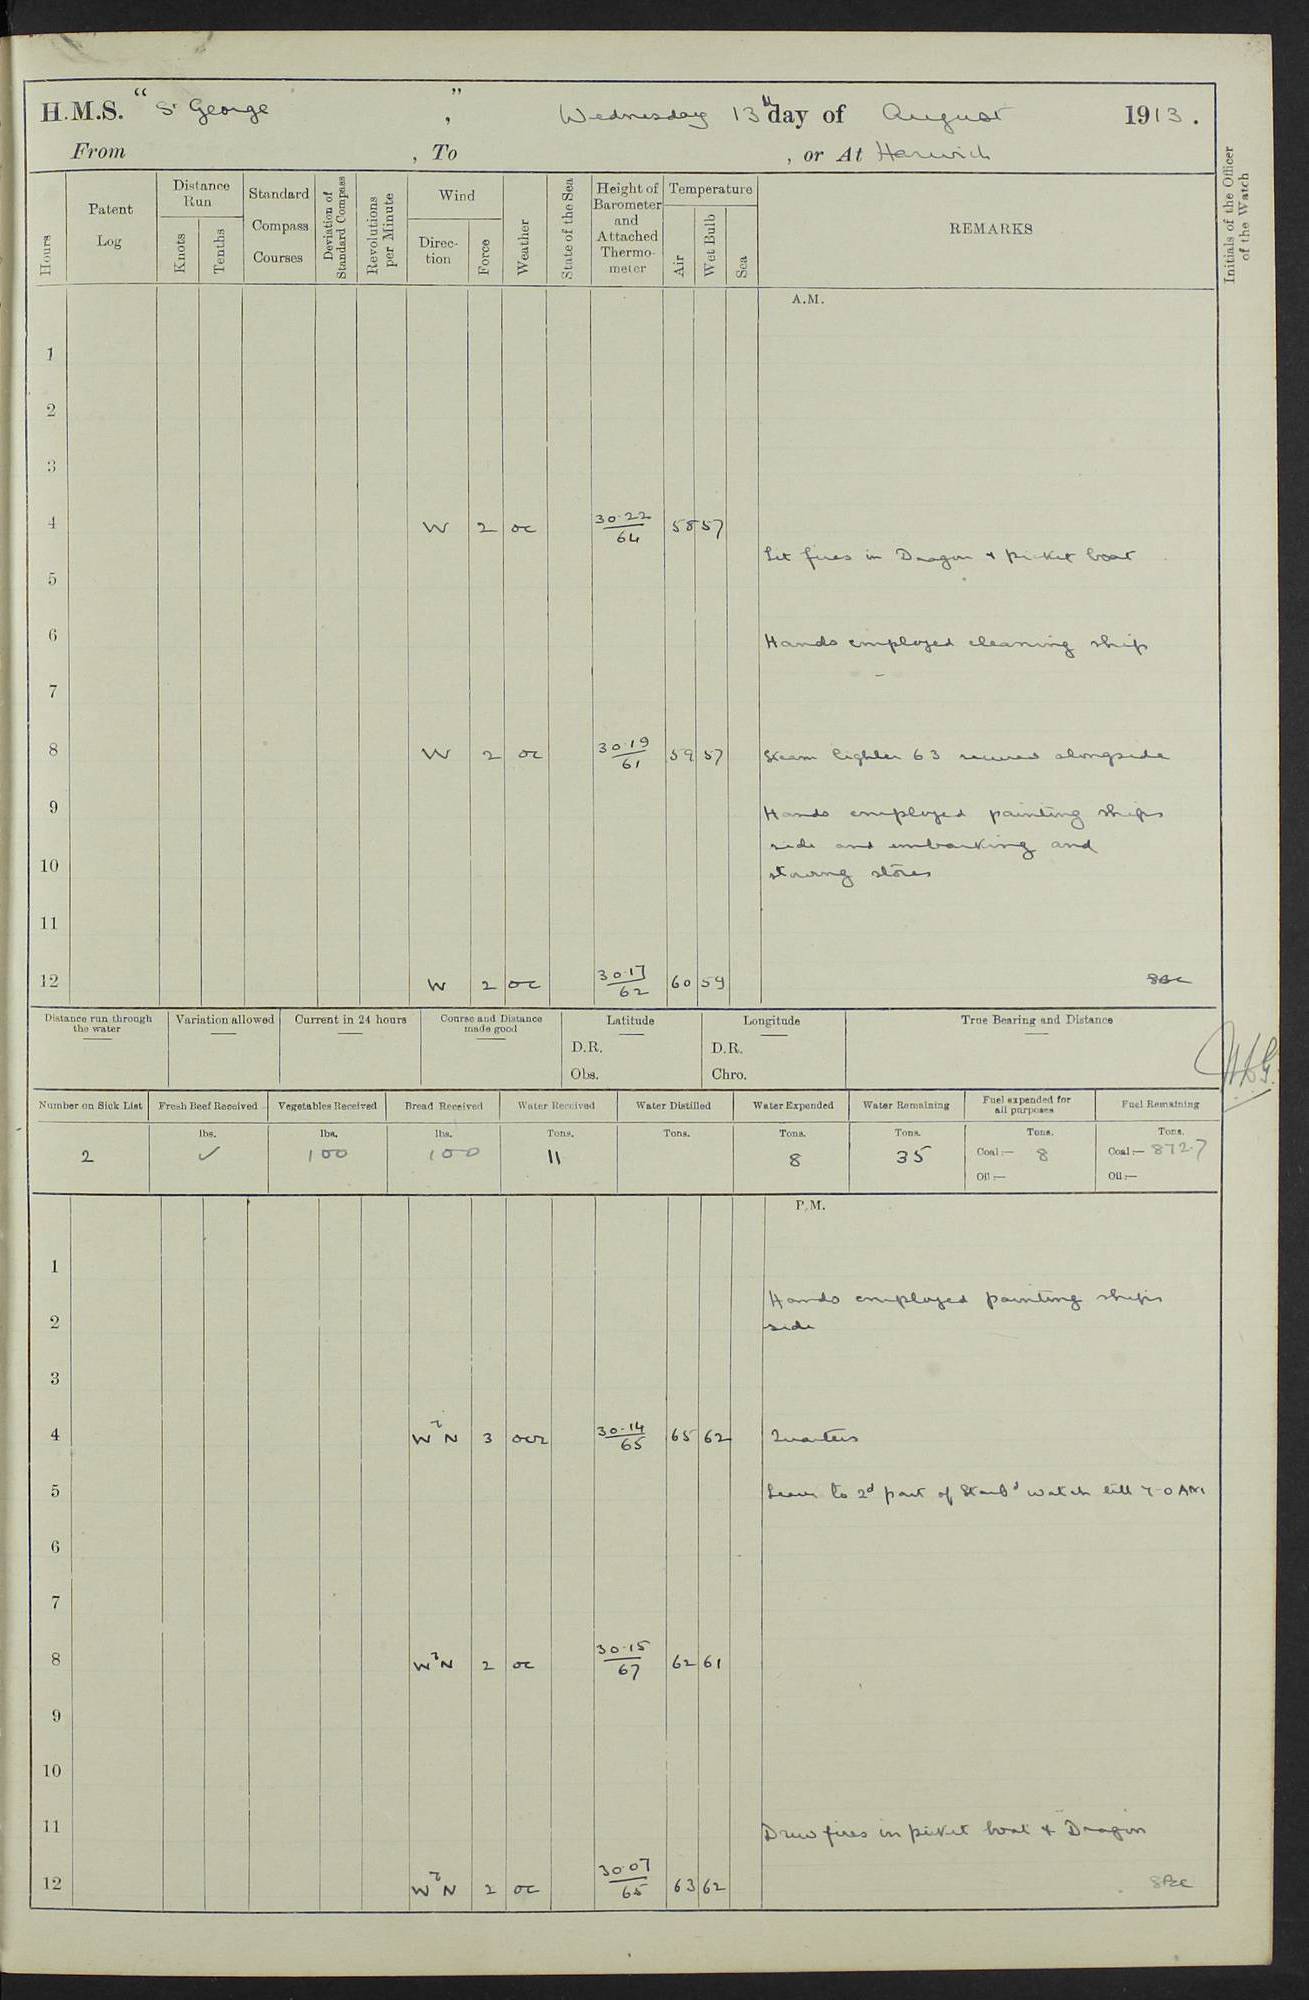 H.M.S. “ St George ”, Wednesday 13th day of August 1913.
From , To , or At Harwich
Hours
Patent Log
Distance Run
Knots
Tenths
Standard Compass Courses
Deviation of Standard Compass
Revolutions per Minute
Wind
Direction
Force
Weather
State of the Sea
Height of Barometer and Attached Thermometer
Temperature
Air
Wet Bulb
Sea
REMARKS
Initials of the Officer of the Watch
A.M.
1
2
3
4 W 2 oc 30.22/64 58 57
Lit fires in Dragon & picket boat
5
6 Hands employed cleaning ship
7
8 W 2 oc 30.19/61 59 57 Steam lighter 63 secured alongside
9 Hands employed painting ships
side and embarking and
10 stowing stores
11
12 W 2 oc 30.17/62 60 59
Distance run through the water
Variation allowed
Current in 24 hours
Course and Distance made good
Latitude
D.R.
Obs.
Longitude
D.R.
Chro.
True Bearing and Distance
Number on Sick List
Fresh Beef Received
Vegetables Received
Bread Received
Water Received
Water Distilled
Water Expended
Water Remaining
Fuel expended for all purposes
Fuel Remaining
lbs. lbs. lbs. Tons. Tons. Tons. Tons. Tons. Tons.
2 ✓ 100 100 11 8 35 Coal:— 8 Coal:— 872.7
Oil:— Oil:—
P.M.
1
Hands employed painting ships
2 side
3
4 WbN 3 ocr 30.14/65 65 62 Quarters
5 Leave to 2d part of Starbd watch till 7-0 AM
6
7
8 WbN 2 oc 30.15/67 62 61
9
10
11 Drew fires in picket boat & Dragon
12 WbN 2 oc 30.07/65 63 62